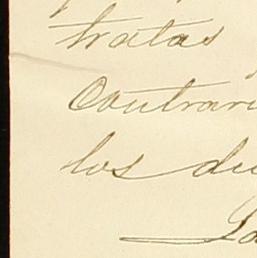 tratas
Contrari
los du